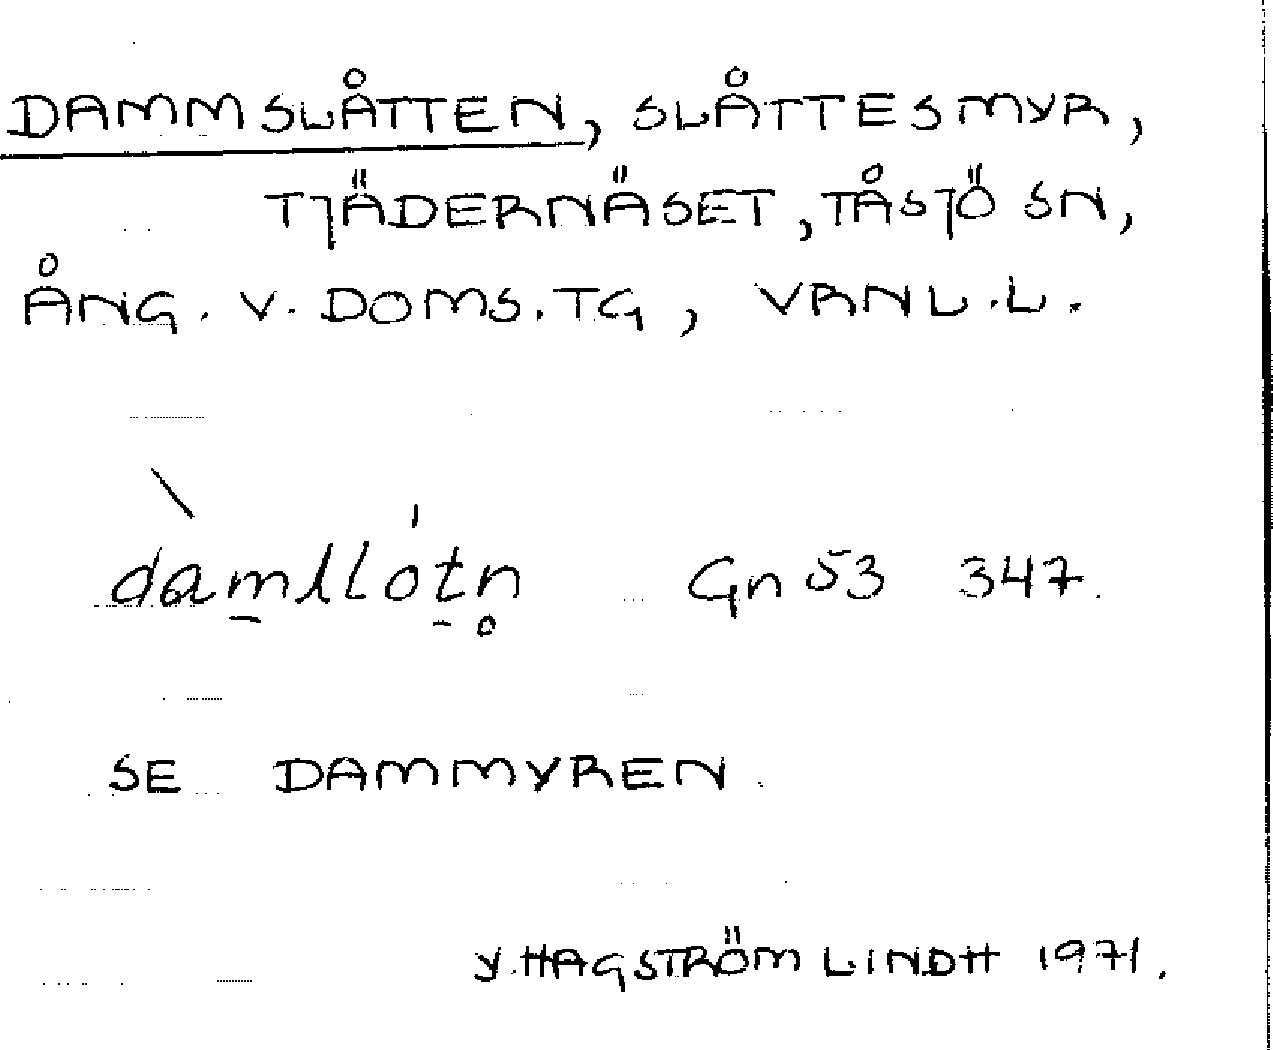 DAMMSLÅTTEN, SLÅTTESMYR,
TJÄDERNÄSET, TÅSJÖ SN,
ÅNG. V. DOMS. TG, VANL. L.
dàm̠ɬlót̠n̥ Gn 53 347.
SE DAMMYREN.
Y. HAGSTRÖM LINDH 1971.